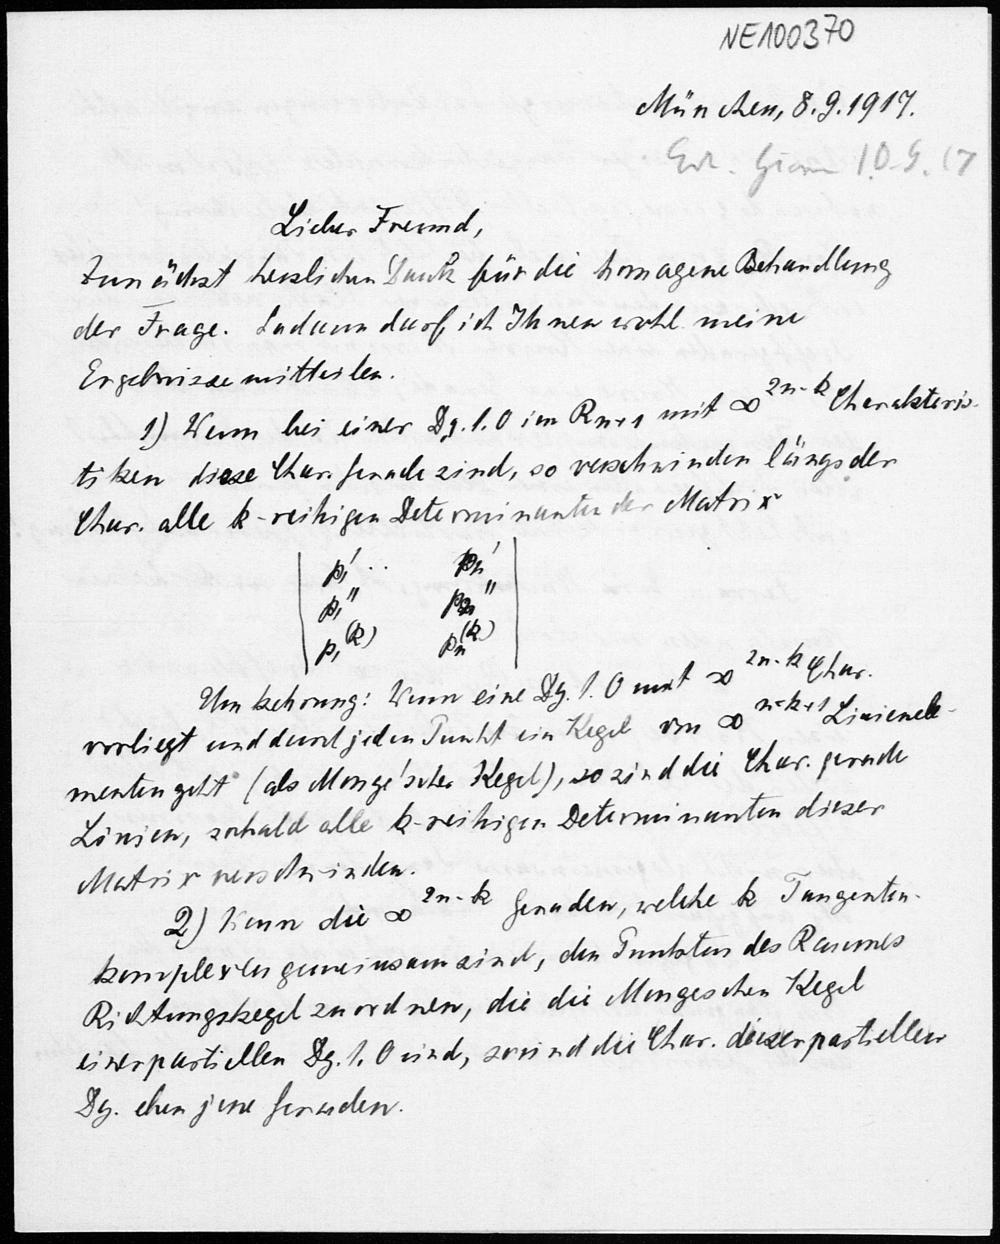 NE100370
München, 8.9.1917.
10.9.17
Lieber Freund,
zunächst herzlichen Dank für die homogene Behandlung
der Frage. Sodann darf ich Ihnen wohl meine
Ergebnisse mitteilen.
1) Wenn bei einer Dg. 1. O im Rn+1 mit ∞^{2n-k} Charakteris-
tiken diese Char. Gerade sind, so verschwinden längs der
Char. alle k-reihigen Determinanten der Matrix
| p₁' ... pₙ' |
| p₁'' pₙ'' |
| p₁^{(k)} pₙ^{(k)} |
Umkehrung: Wenn eine Dg. 1. O mit ∞^{2n-k} Char.
vorliegt und durch jeden Punkt ein Kegel von ∞^{n-k+1} Linienele-
menten geht (als Monge'scher Kegel), so sind die Char. gerade
Linien, sobald alle k-reihigen Determinanten dieser
Matrix verschwinden.
2) Wenn die ∞^{2n-k} Geraden, welche k Tangenten-
komplexen gemeinsam sind, den Punkten des Raumes
Richtungskegel zuordnen, die die Mongeschen Kegel
einer partiellen Dg. 1. O sind, so sind die Char. dieser partiellen
Dg. eben jene Geraden.